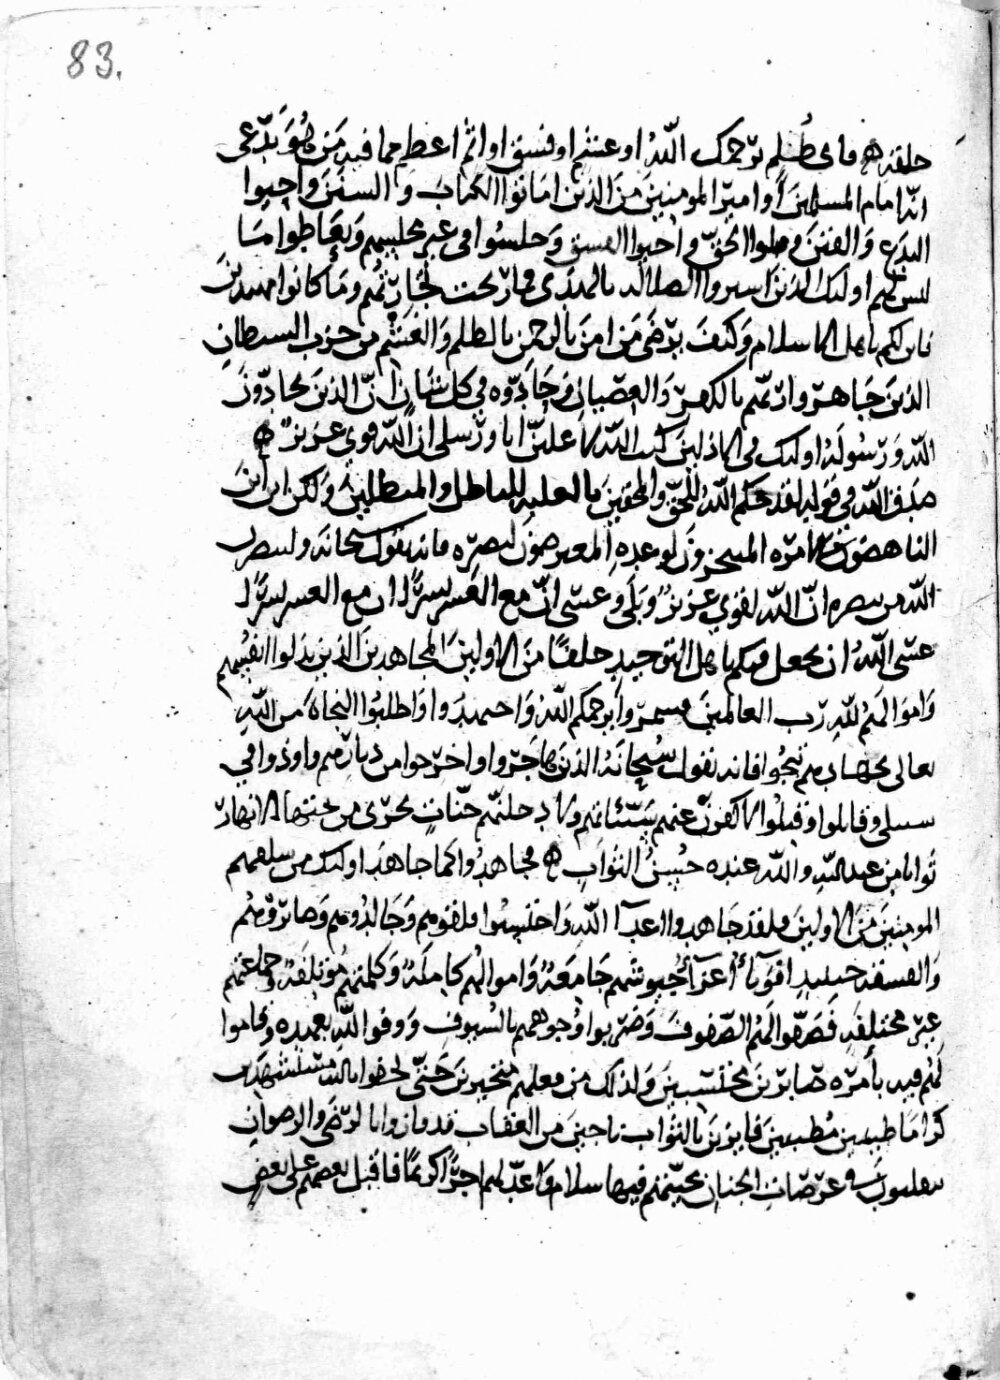 83.
خلقه ه فاى ظلم يرحمك الله او غشم او فسق او اثم اعظم مما فيه من هو يدعى
انه امام المسلمين او امير المومنين من الذين اماتوا الكتاب والسنن واحيوا
البدع والفتن وملوا الحق واحيوا الفسق وجلسوا فى غير مجلسهم وتعاطوا ما
ليس لهم اولئك الذين اشتروا الضلالة بالهدى فما ربحت تجارتهم وما كانوا مهتدين
فاين لكم ياهل الاسلام وكيف يرضى من امن بالرحمن بالظلم والغشم من حزب الشيطان
الذين جاهروا ربهم بالكفر والعصيان وحادوه في كل شان ان الذين يحادون
الله ورسوله اولئك فى الاذلين كتب الله لاغلبن انا ورسلى ان الله قوي عزيز ه
صدق الله في قوله لقد حكم الله للحق والمحقين بالغلبة للباطل والمبطلين ولكن اين اين
الناهضون بامره المستنجزون لوعده المتعرضون لنصره فانه يقول سبحانه ولينصرن
الله من ينصره ان الله لقوي عزيز وبلى وعسى ان مع العسر يسرا ان مع العسر يسرا
عسى الله ان يجعل فيكم ياهل التوحيد خلفا من الاولين المجاهدين الذين بذلوا انفسهم
واموالهم لله رب العالمين فشمروا يرحمكم الله واجتهدوا واطلبوا النجاة من الله
تعالى بجهادهم تنجوا فانه يقول سبحانه الذين هاجروا واخرجوا من ديارهم واوذوا في
سبيلي وقاتلوا وقتلوا لاكفرن عنهم سيئاتهم ولادخلنهم جنات تجرى من تحتها الانهار
ثوابا من عند الله والله عنده حسن الثواب ه فجاهدوا كما جاهد اولئك من سلفهم
المومنين من الاولين فلقد جاهدوا اعدآ الله واحتسبوا فلقوهم وجالدوهم وصابروهم
والفسقة حينئذ اقويآ اعزآ جيوشهم جامعة واموالهم كاملة وكلمتهم مؤتلفة وجماعتهم
غير مختلفة فصفوا لهم الصفوف وضربوا وجوههم بالسيوف ووفوا لله بعهده وقاموا
لهم فيه بأمره صابرين محتسبين ولذلك من فعلهم متخيرين حتى لحقوا بالله مستشهدين
كراما طيبين مطيبين فايزين بالثواب ناجين من العقاب قد فازوا بالرضى والرضوان
يتقلبون في عرصات الجنان تحيتهم فيها سلام واعد لهم اجرا كريما فاقبل بعضهم على بعض